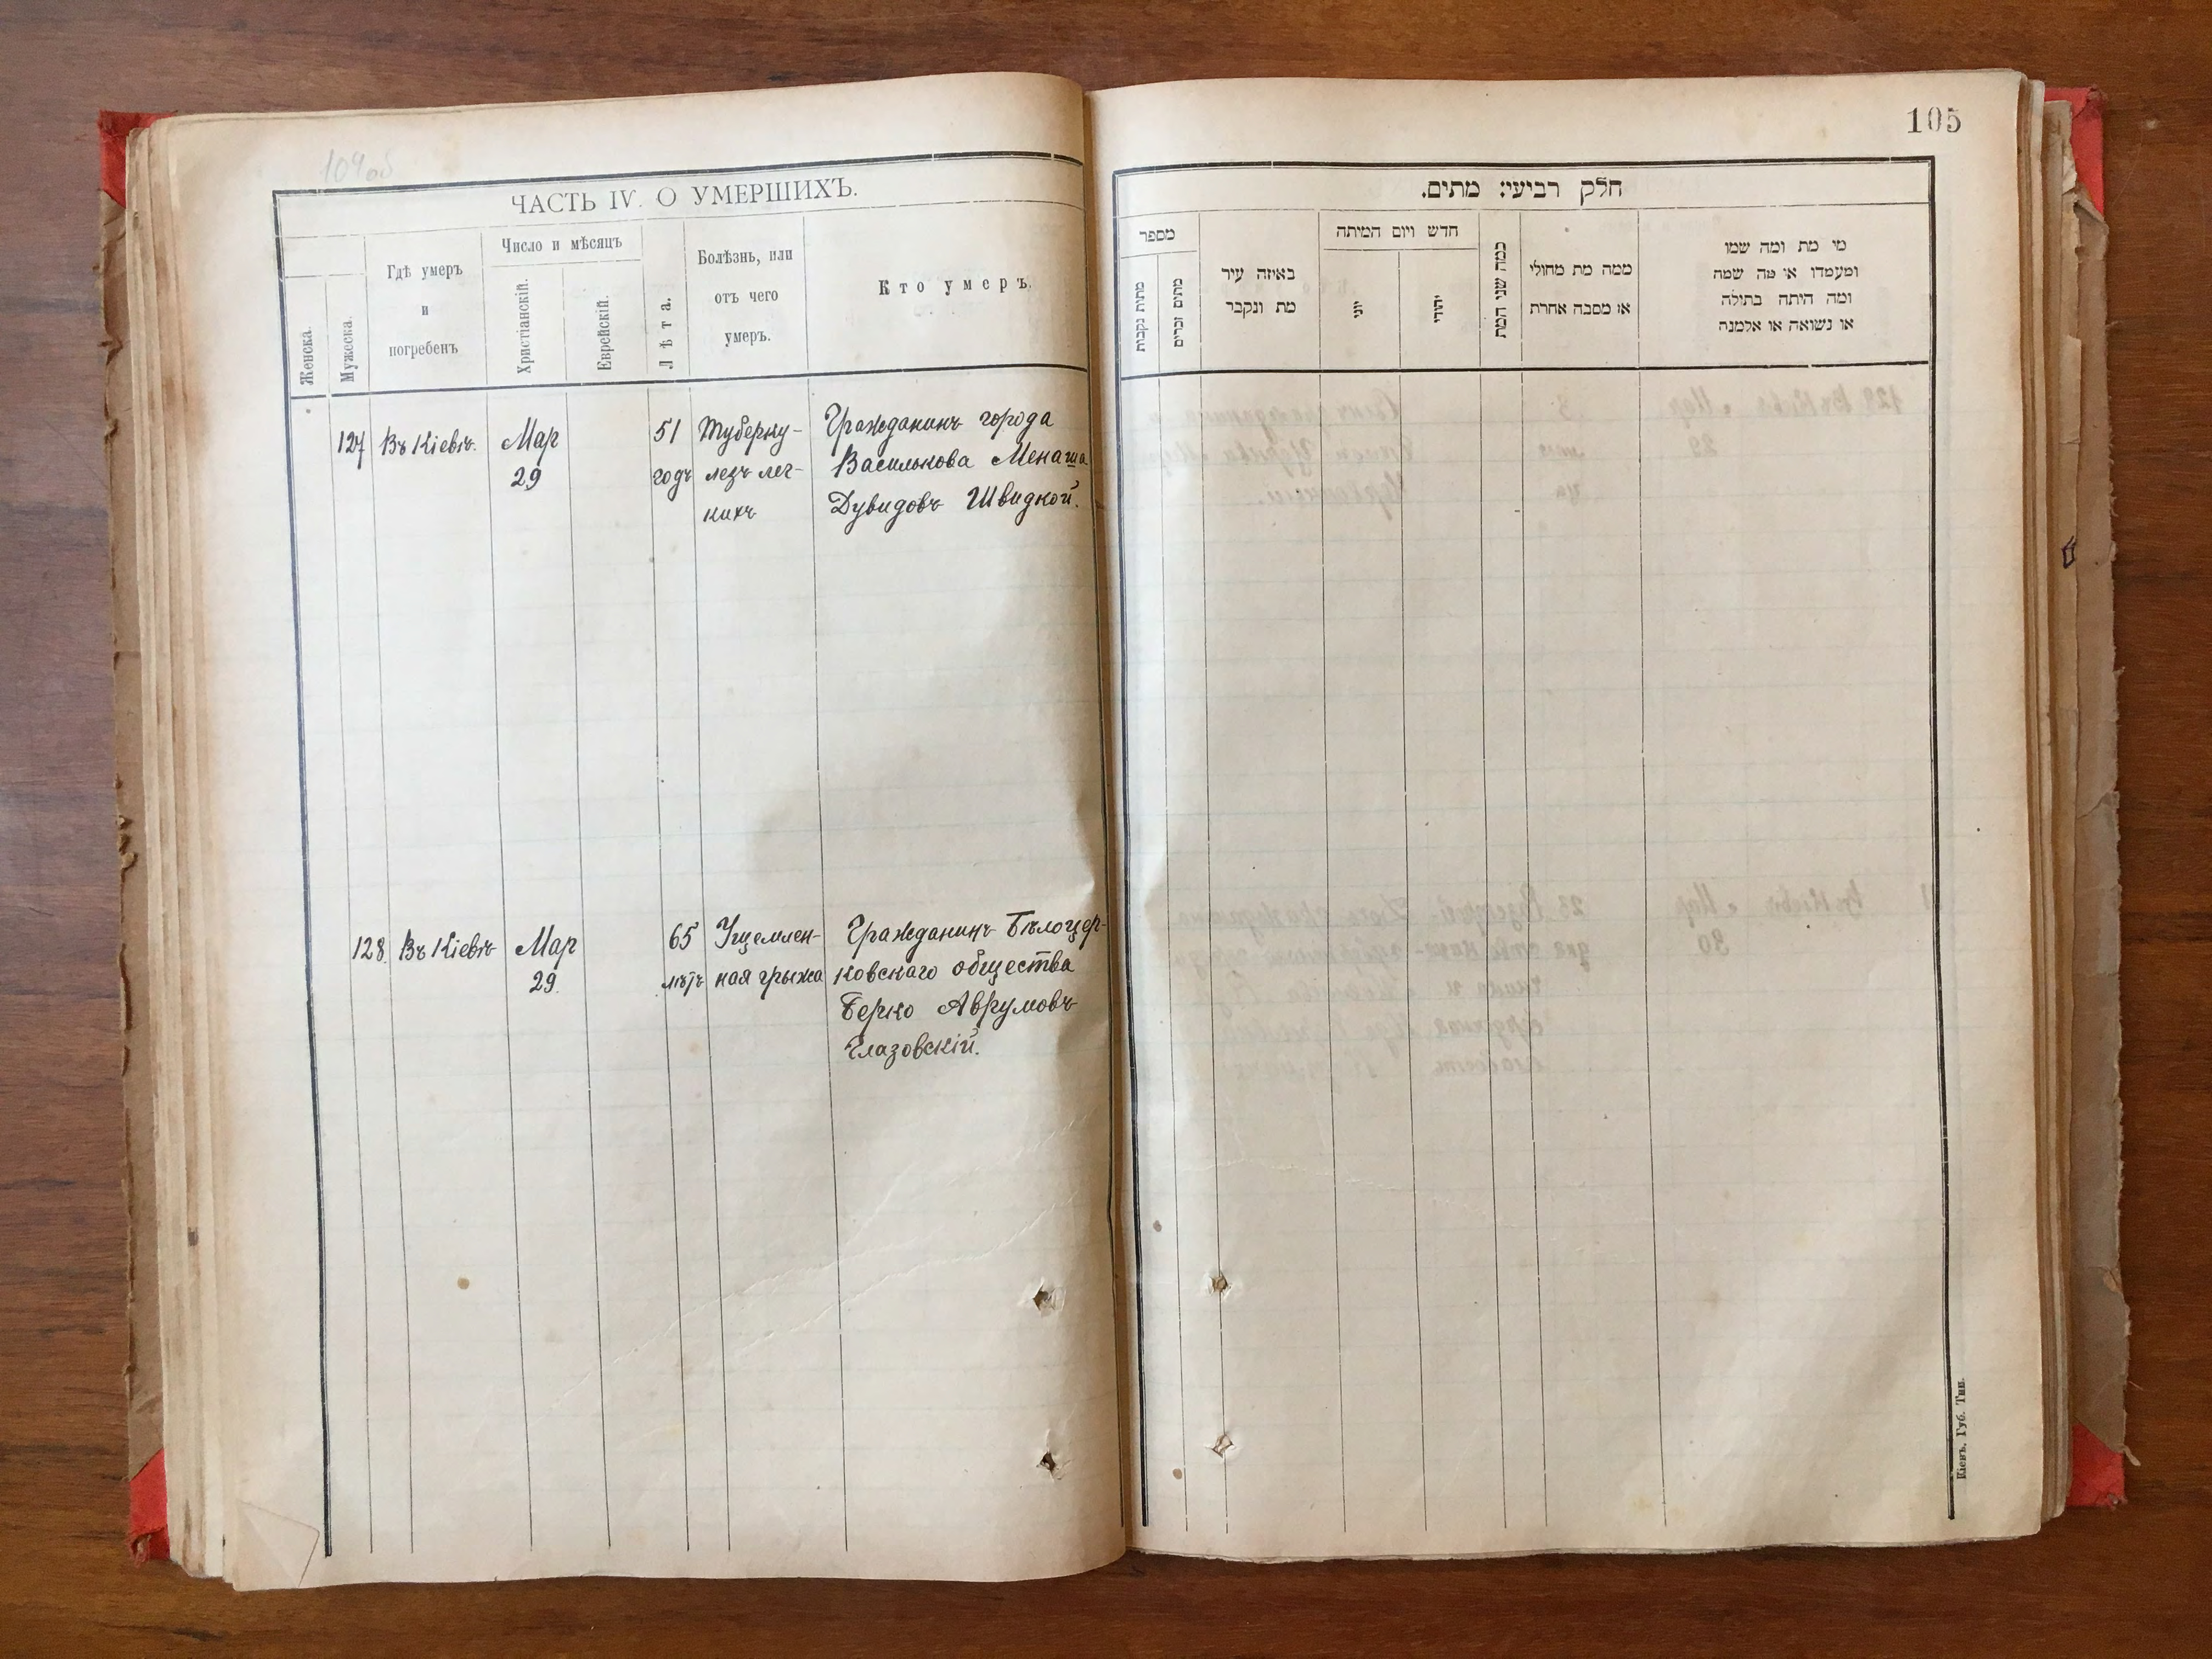 104об
ЧАСТЬ IV. О УМЕРШИХЪ.
Женска.
Мужеска.
Гдѣ умеръ
и
погребенъ
Число и мѣсяцъ
Христіанскій.
Еврейскій.
Лѣта.
Болѣзнь, или
отъ чего
умеръ.
Кто умеръ.
127
Въ Кіевѣ.
Мар
29
51
годъ
Туберку-
лезъ лег-
кихъ
Гражданинъ города
Василькова Менаша
Дувидовъ Швидкой.
128.
Въ Кіевѣ
Мар
29.
65
лѣтъ
Ущемлен-
ная грыжа
Гражданинъ Бѣлоцер-
ковскаго общества
Берко Аврумовъ
Глазовскій.
105
חלק רביעי: מתים.
מספר
מתות נקבות
מתים זכרים
באיזה עיר
מת ונקבר
חדש ויום המיתה
יוני
יהודי
כמה שני המת
ממה מת מחולי
או מסבה אחרת
מי מת ומה שמו
ומעמדו או מה שמה
ומה היתה בתולה
או נשואה או אלמנה
Кіевъ, Губ. Тип.